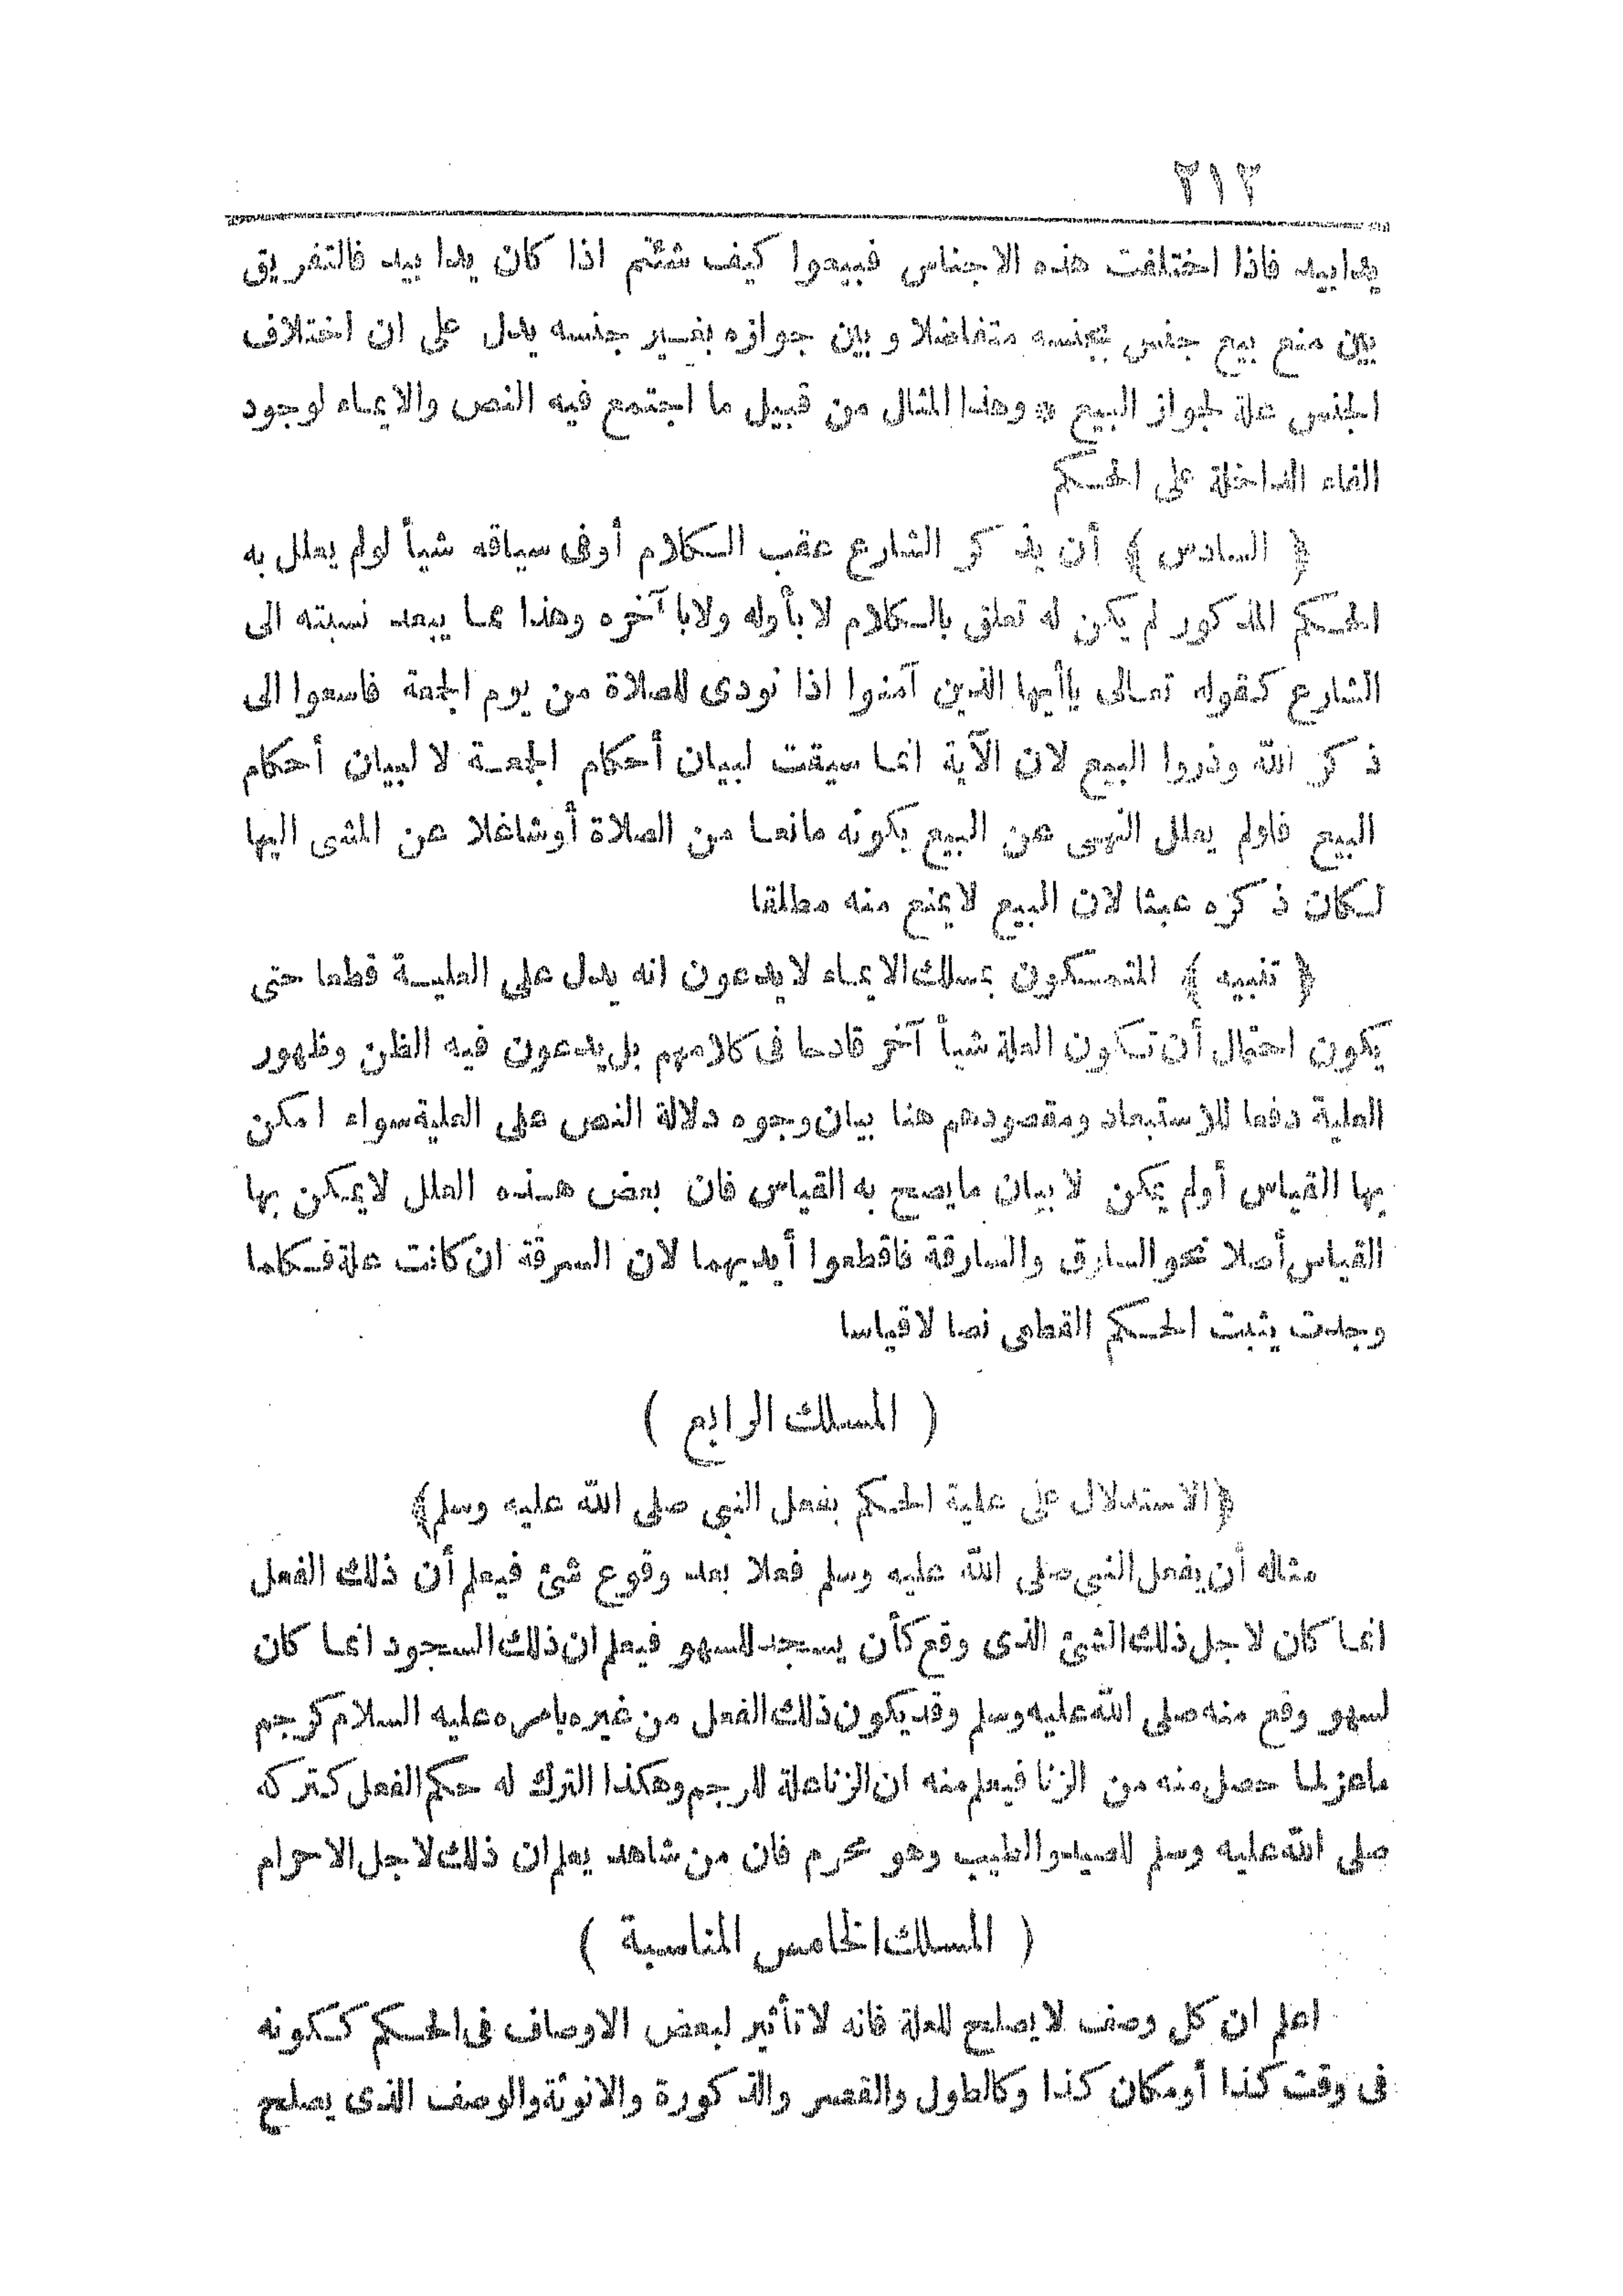 ٢١٢
يدابيد فاذا اختلفت هذه الاجناس فبيعوا كيف شئتم اذا كان يدا بيد فالتفريق
بين منع بيع جنس بجنسه متفاضلا و بين جوازه بغير جنسه يدل على ان اختلاف
الجنس علة لجواز البيع * وهذا المثال من قبيل ما اجتمع فيه النص والايماء لوجود
الفاء الداخلة على الحكم
﴿ السادس ﴾ أن يذكر الشارع عقب الكلام أوفى سياقه شيأ لولم يعلل به
الحكم المذكور لم يكن له تعلق بالكلام لا بأوله ولابآخره وهذا مما يبعد نسبته الى
الشارع كقوله تعالى ياأيها الذين آمنوا اذا نودى للصلاة من يوم الجمعة فاسعوا الى
ذكر الله وذروا البيع لان الآية انما سيقت لبيان أحكام الجمعة لا لبيان أحكام
البيع فلولم يعلل النهى عن البيع بكونه مانعا من الصلاة أوشاغلا عن المشى اليها
لكان ذكره عبثا لان البيع لايمنع منه مطلقا
﴿ تنبيه ﴾ المتمسكون بمسلك الايماء لا يدعون انه يدل على العلية قطعا حتى
يكون احتمال أن تكون العلة شيأ آخر قادحا فى كلامهم بل يدعون فيه الظن وظهور
العلية دفعا للاستبعاد ومقصودهم هنا بيان وجوه دلالة النص على العلية سواء امكن
بها القياس أولم يمكن لا بيان مايصح به القياس فان بعض هذه العلل لايمكن بها
القياس أصلا نحو السارق والسارقة فاقطعوا أيديهما لان السرقة ان كانت علة فكلما
وجدت يثبت الحكم القطعى نصا لاقياسا
( المسلك الرابع )
﴿الاستدلال على علية الحكم بفعل النبي صلى الله عليه وسلم﴾
مثاله أن يفعل النبي صلى الله عليه وسلم فعلا بعد وقوع شئ فيعلم أن ذلك الفعل
انما كان لاجل ذلك الشئ الذى وقع كأن يسجد للسهو فيعلم ان ذلك السجود انما كان
لسهو وقع منه صلى الله عليه وسلم وقد يكون ذلك الفعل من غيره بامره عليه السلام كرجم
ماعز لما حصل منه من الزنا فيعلم منه ان الزنا علة للرجم وهكذا الترك له حكم الفعل كتركه
صلى الله عليه وسلم للصيد والطيب وهو محرم فان من شاهد يعلم ان ذلك لاجل الاحرام
( المسلك الخامس المناسبة )
اعلم ان كل وصف لا يصلح للعلة فانه لا تأثير لبعض الاوصاف فى الحكم ككونه
فى وقت كذا أومكان كذا وكالطول والقصر والذكورة والانوثة والوصف الذى يصلح